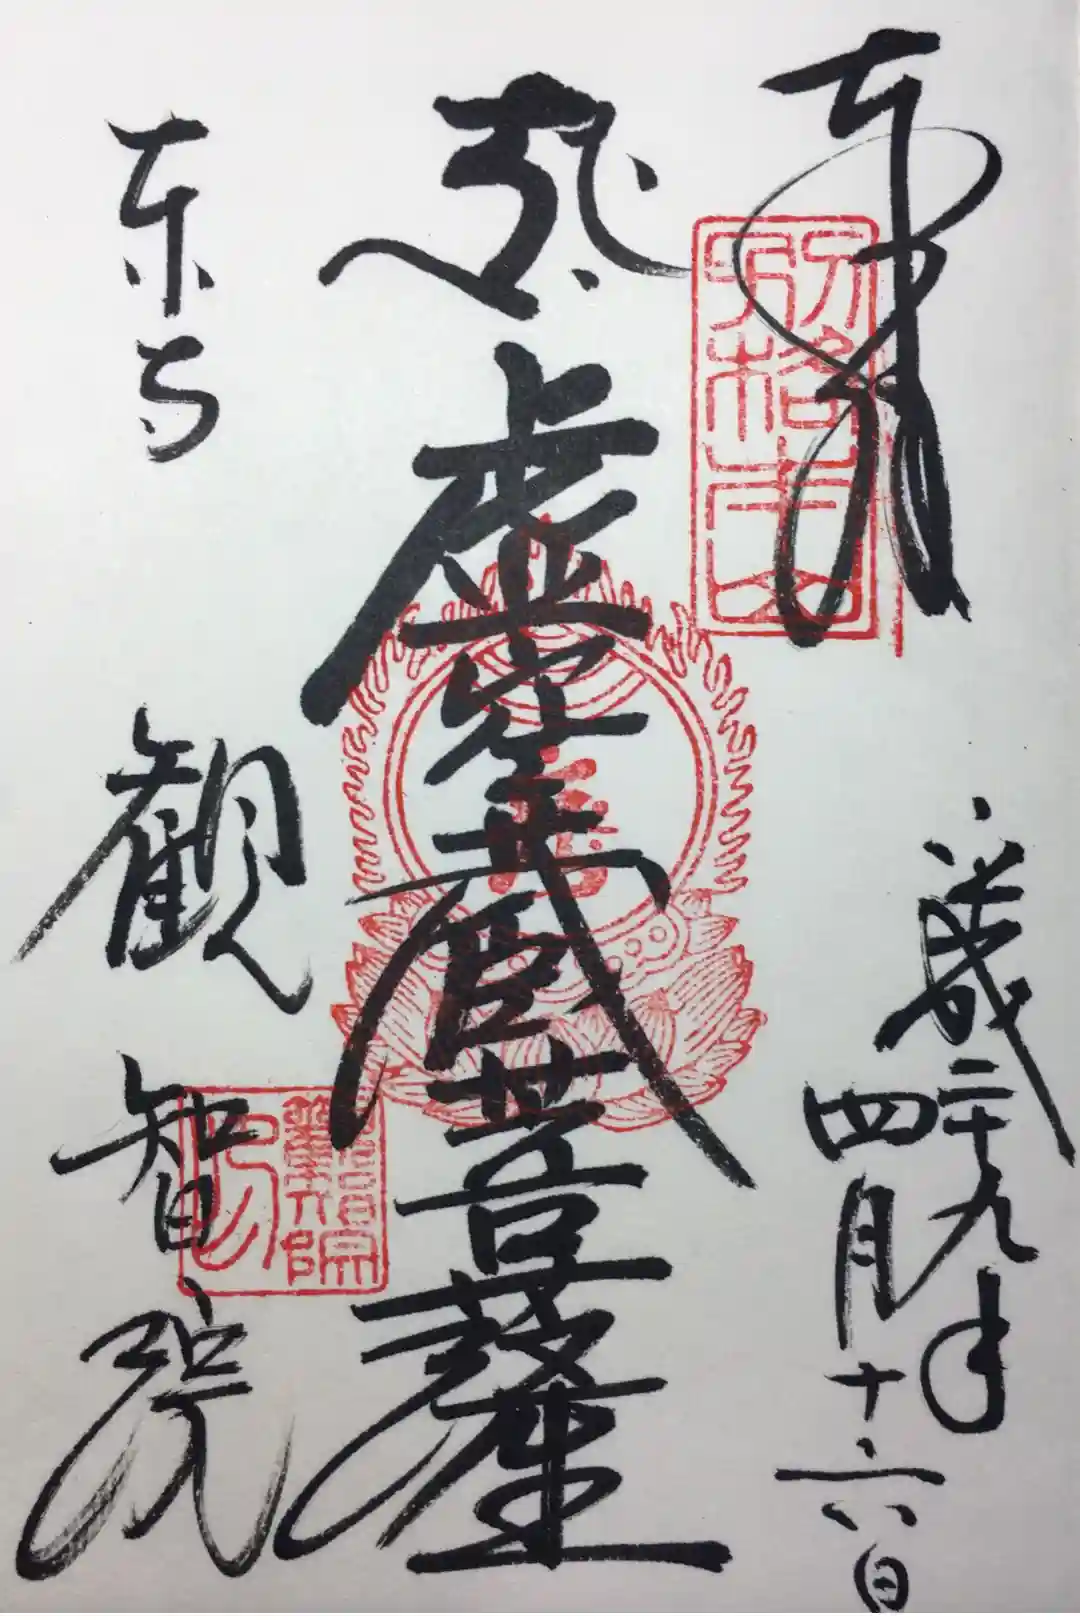 奉拝
平成二十九年
四月十六日
虚空蔵菩薩
東寺
観智院